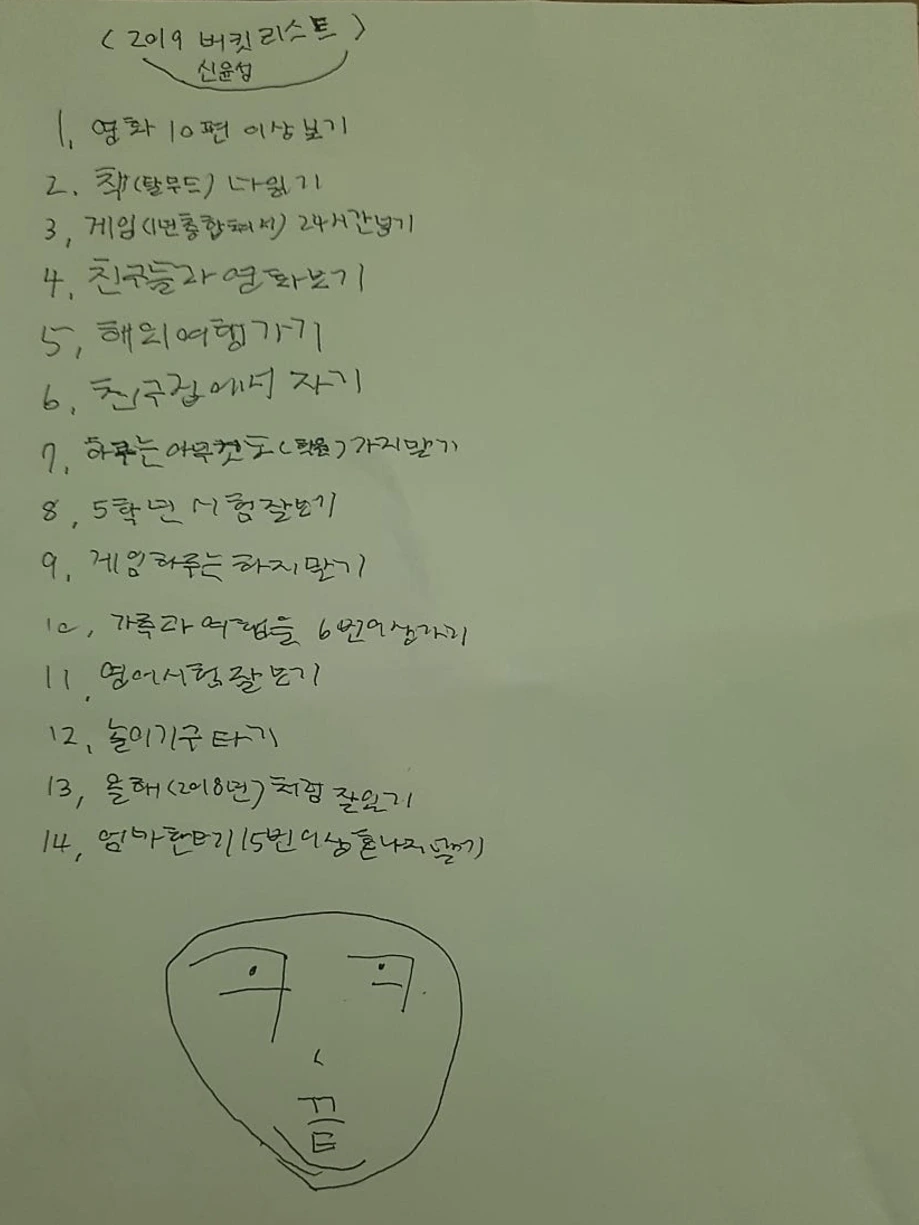 < 2019 버킷리스트 >
신윤성
1, 영화 10편 이상보기
2. 책(탈무드) 다읽기
3, 게임(1년총합쳐서) 24시간넘기
4, 친구들과 영화보기
5, 해외여행가기
6, 친구집에서 자기
7, 하루는아무것도(학원)가지말기
8, 5학년 시험잘보기
9, 게임하루는 하지말기
10, 가족과 여행을 6번이상가기
11, 영어시험잘보기
12, 놀이기구타기
13, 올해(2018년)처럼 잘있기
14, 엄마한테 15번이상혼나지 말기
끝